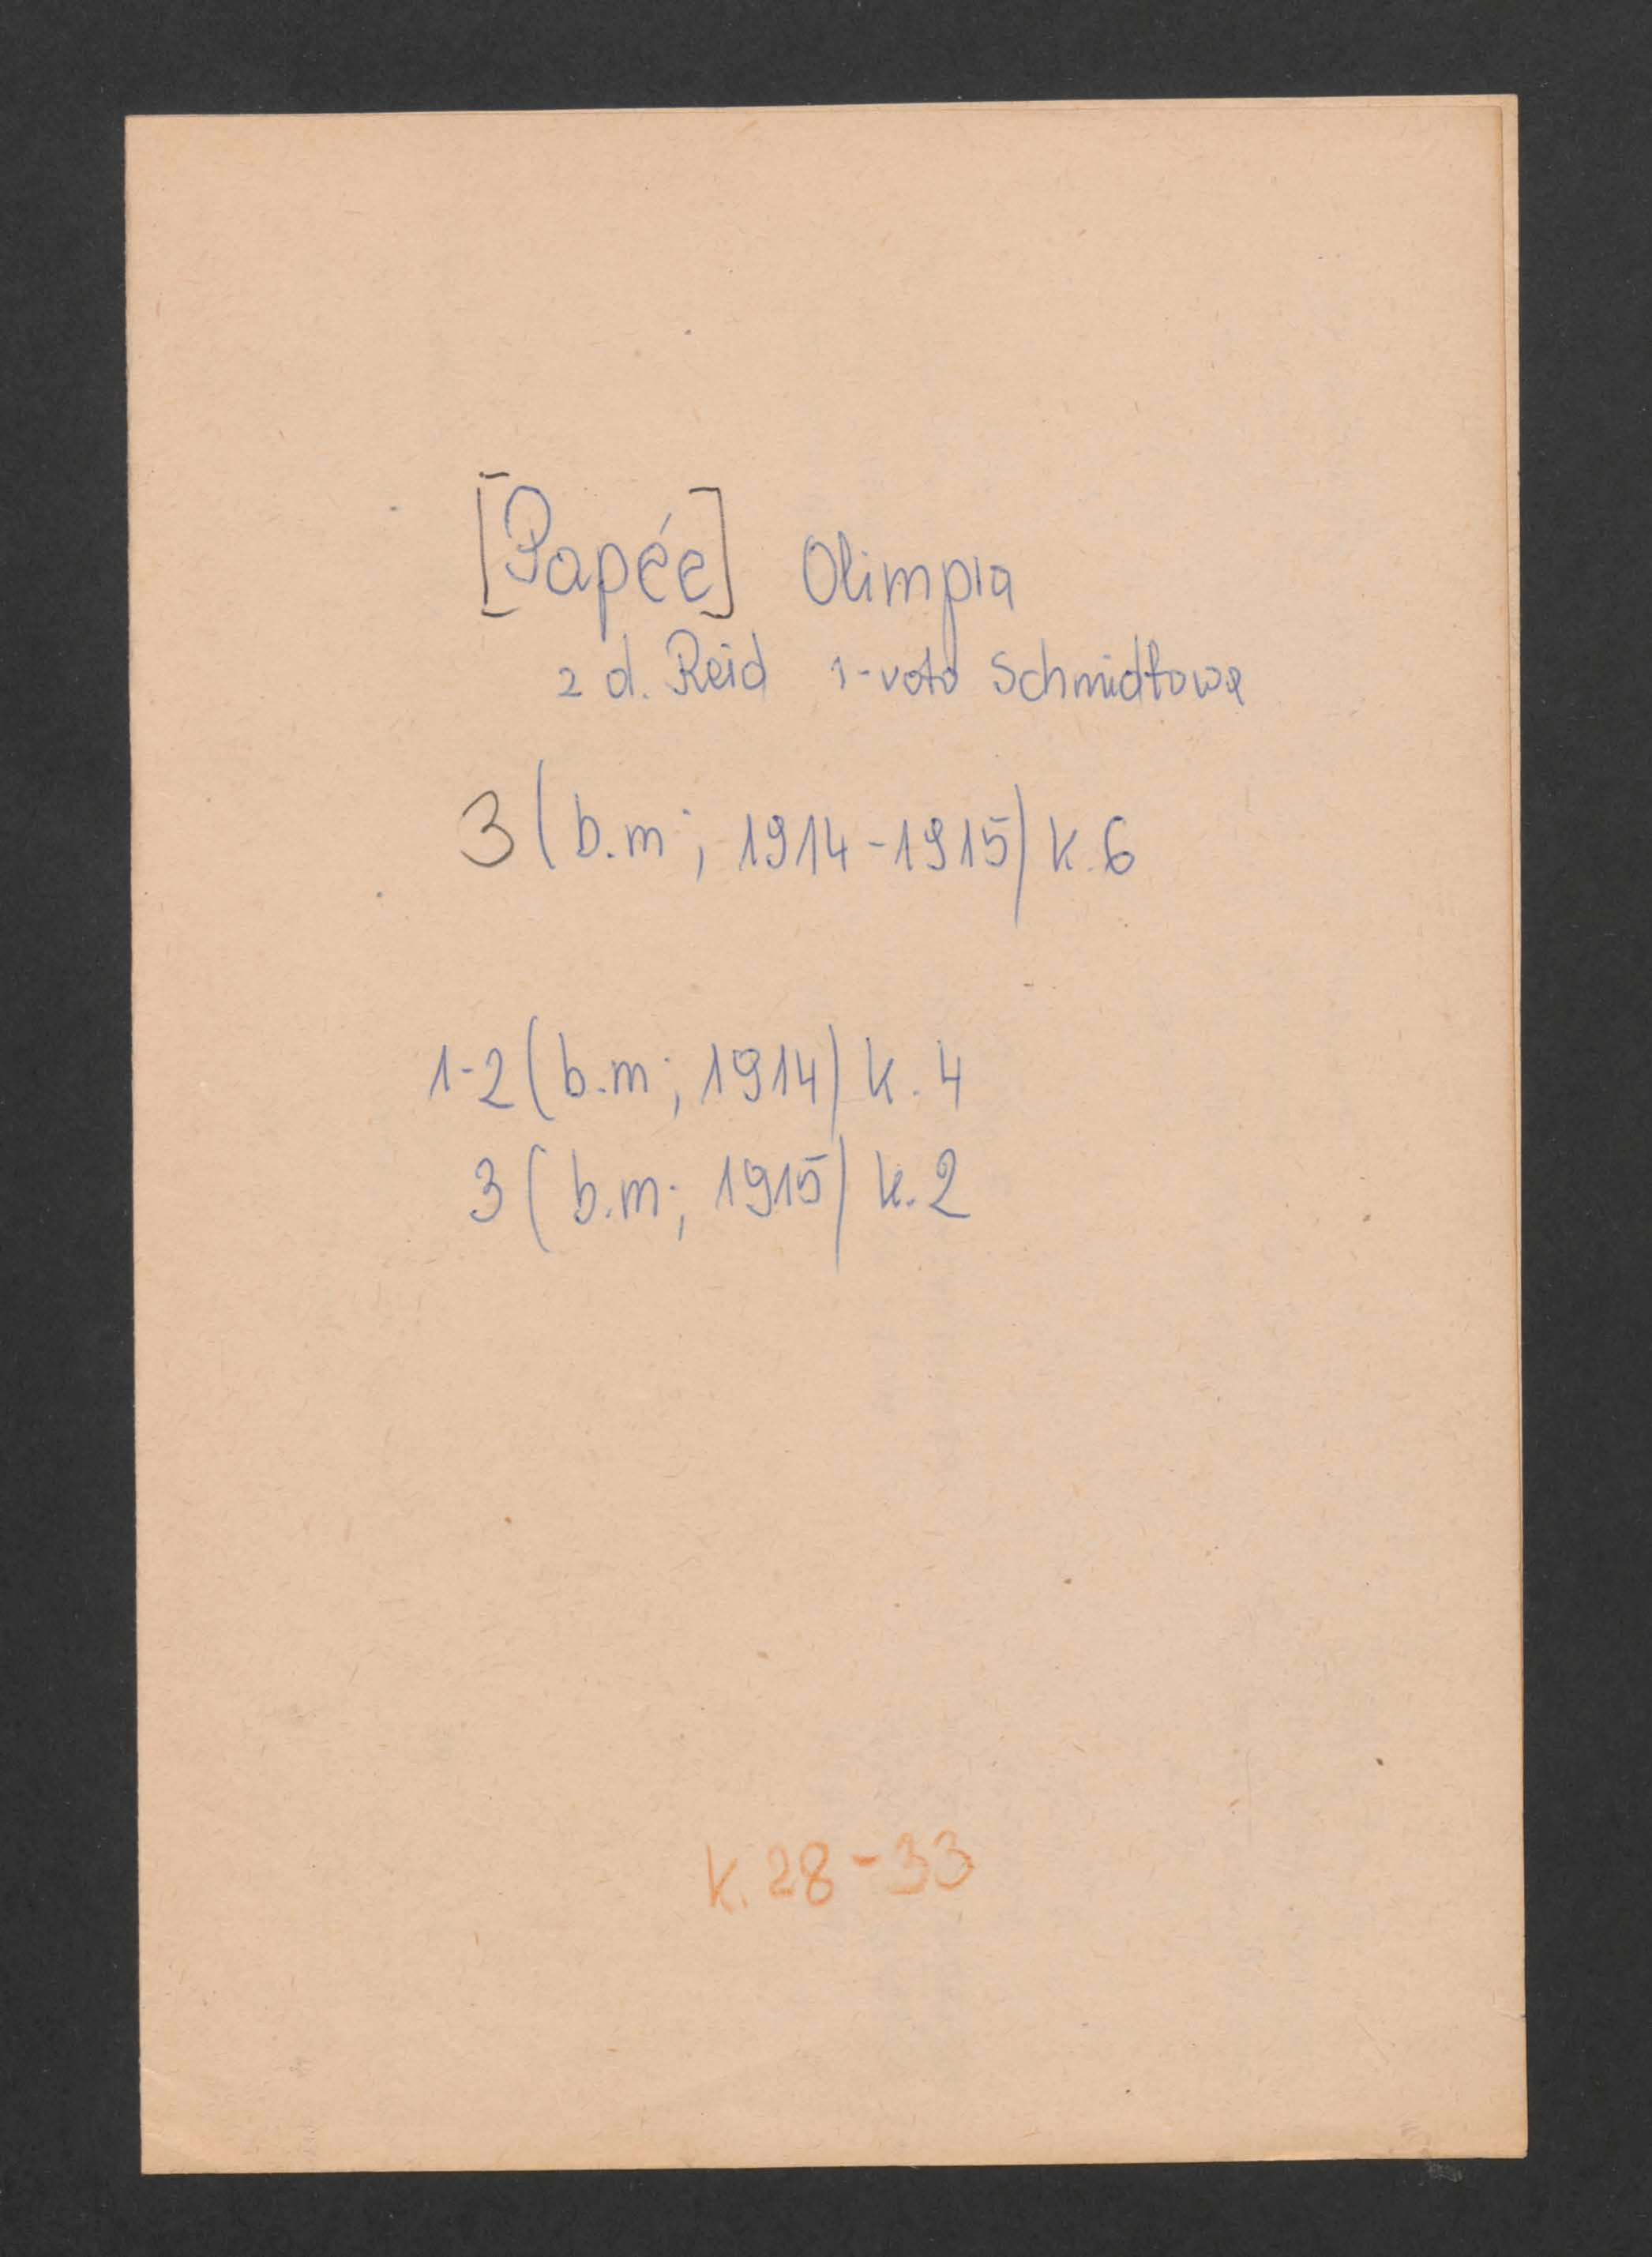 [Papée] Olimpia
z d. Reid 1-voto Schmidtowa
3 (b.m.; 1914-1915) k. 6
1-2 (b.m.; 1914) k. 4
3 (b.m.; 1915) k. 2
k. 28-33